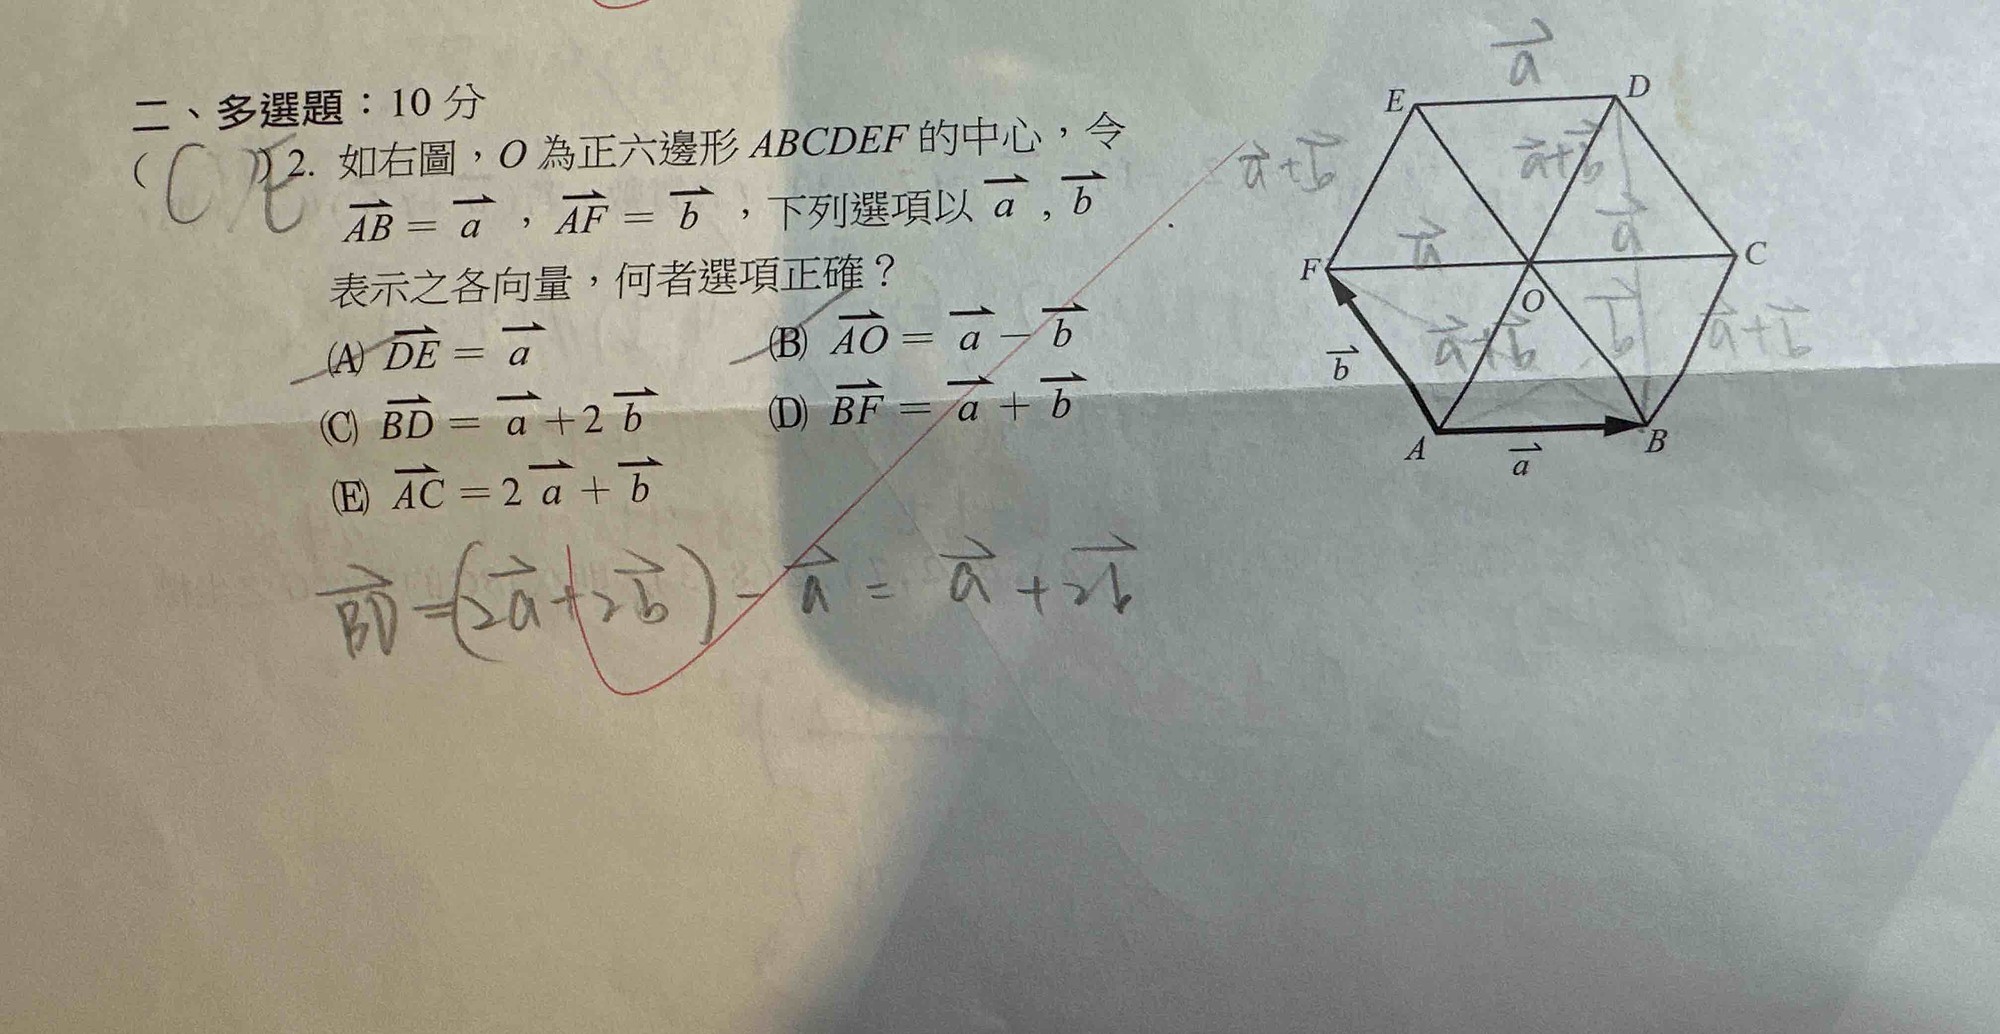 二、多選題：10 分
( CE )2. 如右圖，O 為正六邊形 ABCDEF 的中心，令
$\overrightarrow{AB}$ = $\overrightarrow{a}$，$\overrightarrow{AF}$ = $\overrightarrow{b}$，下列選項以 $\overrightarrow{a}$ , $\overrightarrow{b}$
表示之各向量，何者選項正確？
(A) $\overrightarrow{DE}$ = $\overrightarrow{a}$ (B) $\overrightarrow{AO}$ = $\overrightarrow{a}$ − $\overrightarrow{b}$
(C) $\overrightarrow{BD}$ = $\overrightarrow{a}$ + 2 $\overrightarrow{b}$ (D) $\overrightarrow{BF}$ = $\overrightarrow{a}$ + $\overrightarrow{b}$
(E) $\overrightarrow{AC}$ = 2 $\overrightarrow{a}$ + $\overrightarrow{b}$
$\overrightarrow{BD}$ = (2$\overrightarrow{a}$ + 2$\overrightarrow{b}$) − $\overrightarrow{a}$ = $\overrightarrow{a}$ + 2$\overrightarrow{b}$
$\overrightarrow{a}$
E D
$\overrightarrow{a}$+$\overrightarrow{b}$ $\overrightarrow{a}$+$\overrightarrow{b}$
$\overrightarrow{a}$ $\overrightarrow{a}$
F O C
$\overrightarrow{b}$ $\overrightarrow{a}$+$\overrightarrow{b}$ $\overrightarrow{b}$ $\overrightarrow{a}$+$\overrightarrow{b}$
A $\overrightarrow{a}$ B